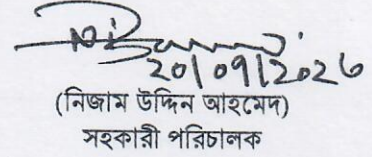 20/09/2026
(নিজাম উদ্দিন আহমেদ)
সহকারী পরিচালক